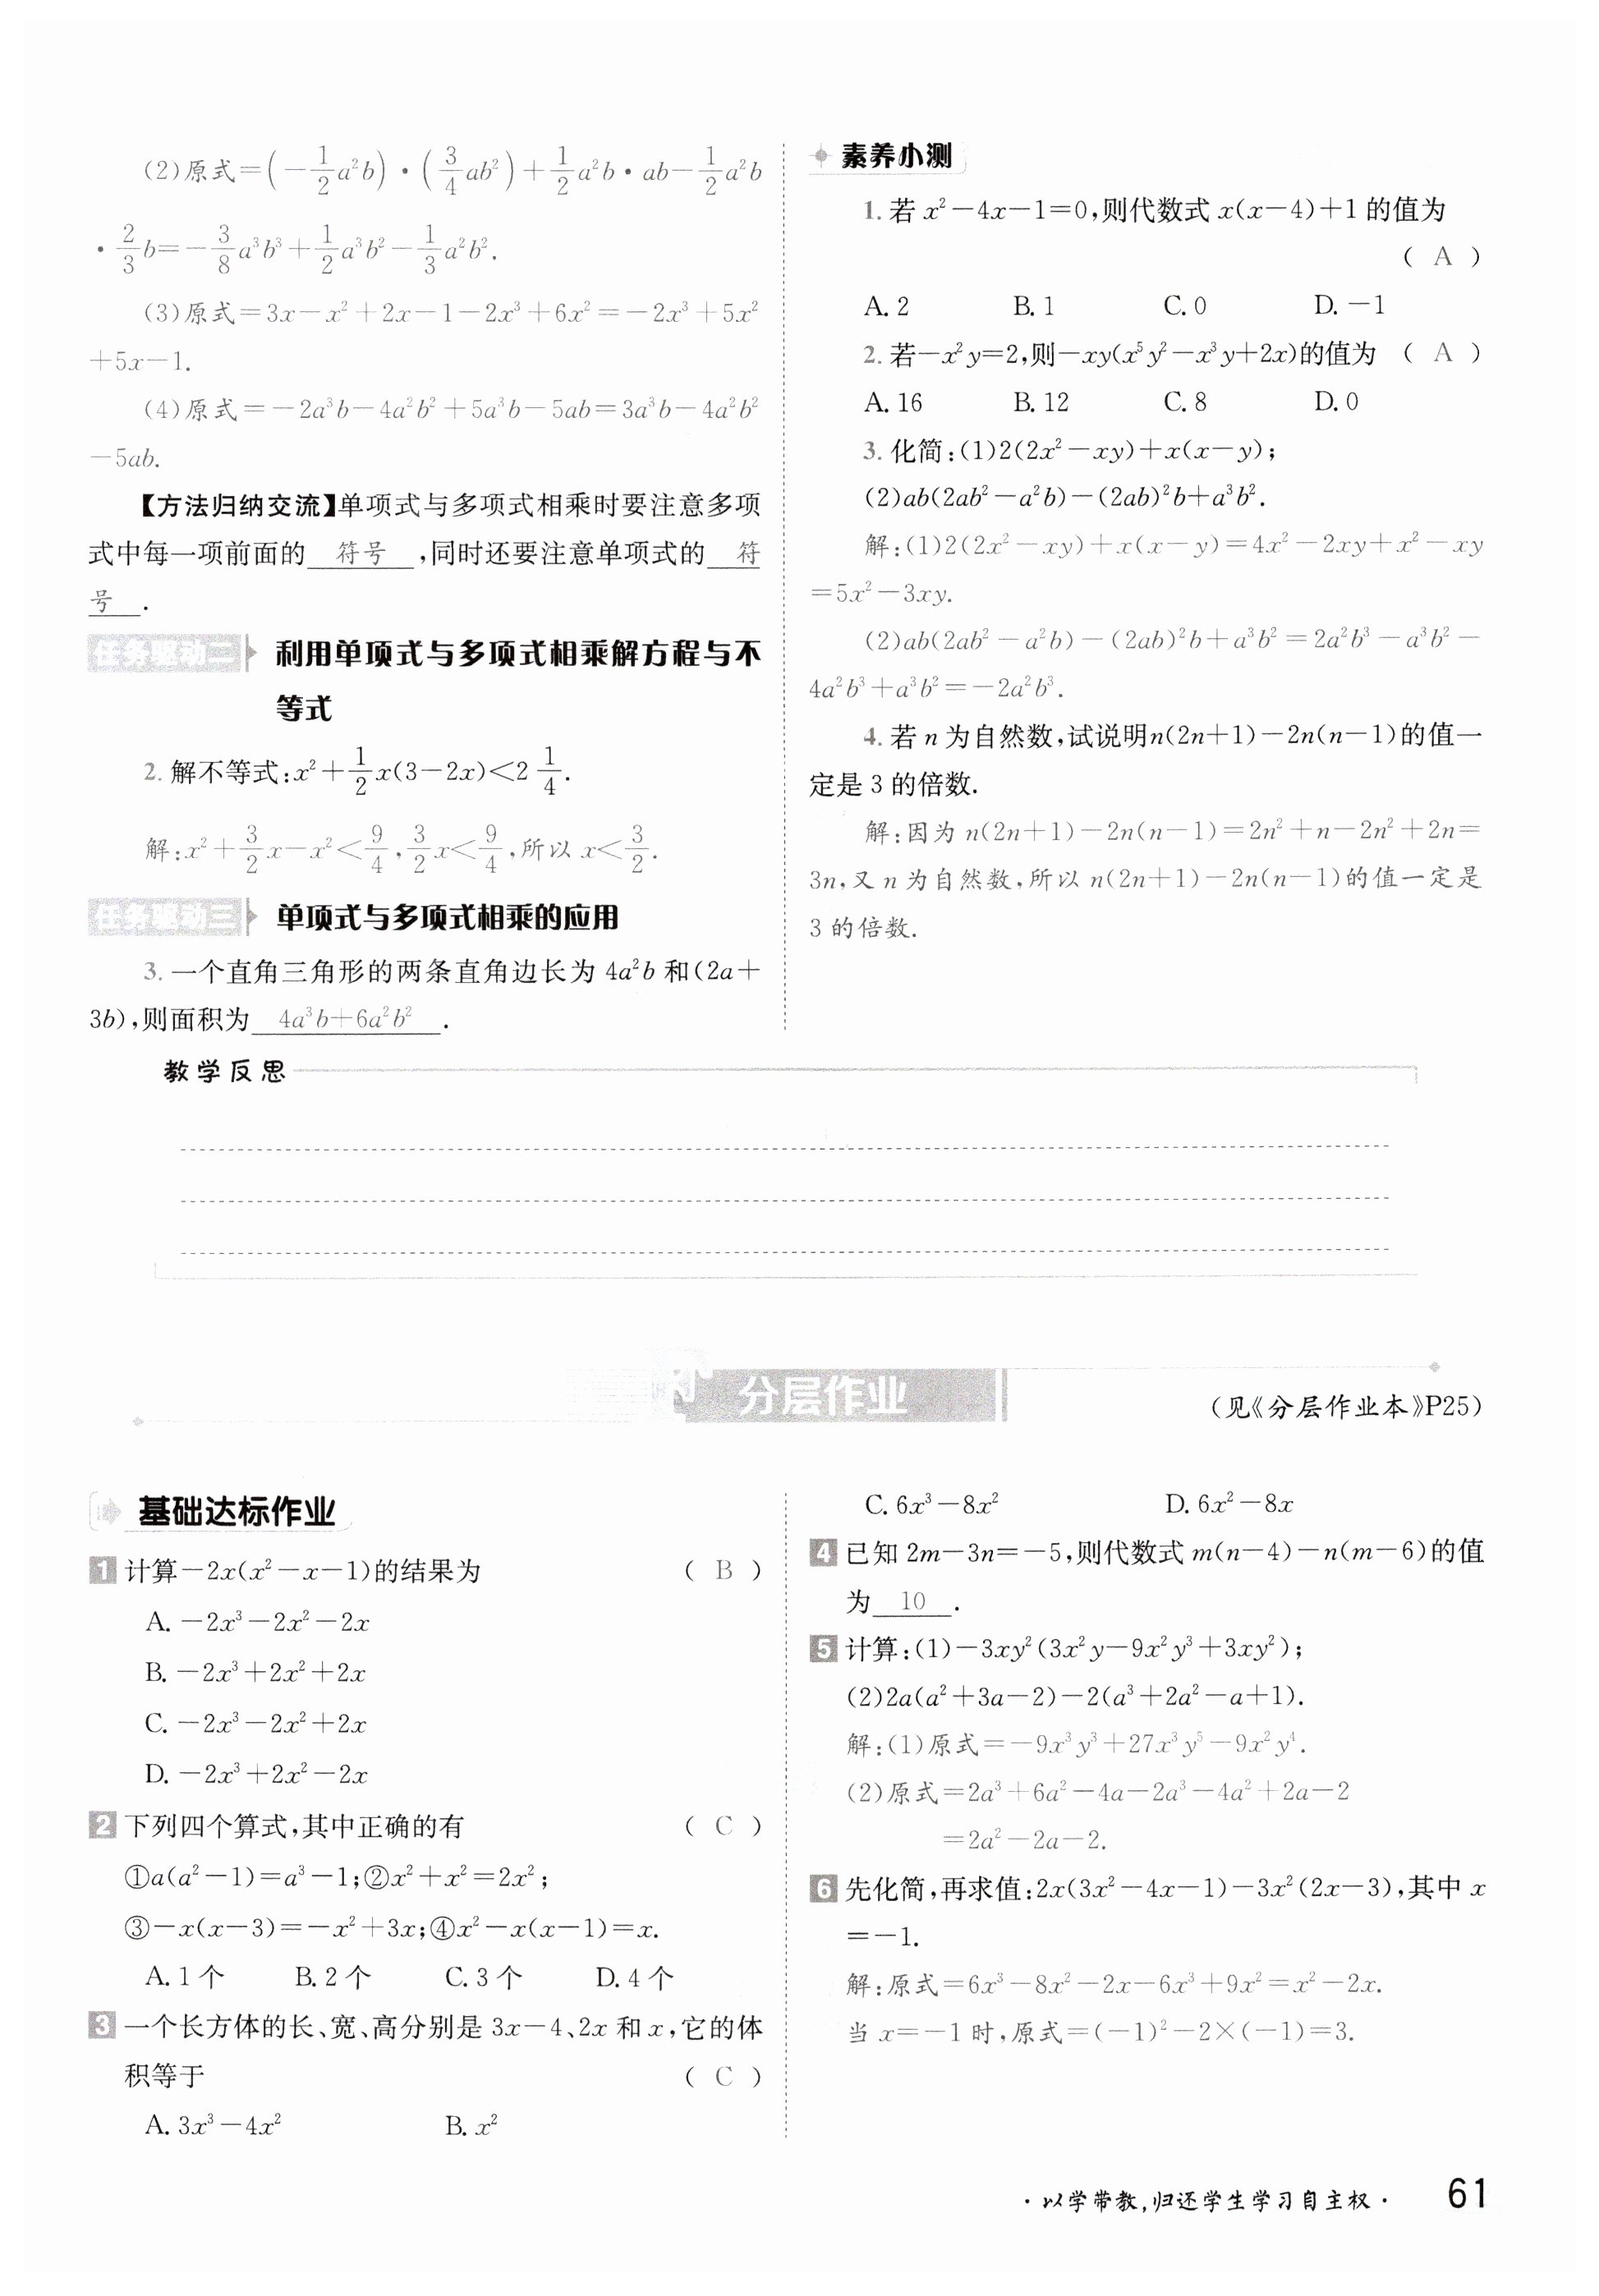 (2)原式=(-1/2a²b)·(3/4ab²)+1/2a²b·ab-1/2a²b
·2/3b=-3/8a³b³+1/2a³b²-1/3a²b².
(3)原式=3x-x²+2x-1-2x³+6x²=-2x³+5x²
+5x-1.
(4)原式=-2a³b-4a²b²+5a³b-5ab=3a³b-4a²b²
-5ab.
【方法归纳交流】单项式与多项式相乘时要注意多项
式中每一项前面的 符号 ,同时还要注意单项式的 符
号 .
任务驱动二 利用单项式与多项式相乘解方程与不
等式
2. 解不等式:x²+1/2x(3-2x)<2 1/4.
解:x²+3/2x-x²<9/4,3/2x<9/4,所以 x<3/2.
任务驱动三 单项式与多项式相乘的应用
3. 一个直角三角形的两条直角边长为 4a²b 和(2a+
3b),则面积为 4a³b+6a²b² .
素养小测
1. 若 x²-4x-1=0,则代数式 x(x-4)+1 的值为
( A )
A. 2 B. 1 C. 0 D. -1
2. 若-x²y=2,则-xy(x⁵y²-x³y+2x)的值为 ( A )
A. 16 B. 12 C. 8 D. 0
3. 化简:(1)2(2x²-xy)+x(x-y);
(2)ab(2ab²-a²b)-(2ab)²b+a³b².
解:(1)2(2x²-xy)+x(x-y)=4x²-2xy+x²-xy
=5x²-3xy.
(2)ab(2ab²-a²b)-(2ab)²b+a³b²=2a²b³-a³b²-
4a²b³+a³b²=-2a²b³.
4. 若 n 为自然数,试说明n(2n+1)-2n(n-1)的值一
定是 3 的倍数.
解:因为 n(2n+1)-2n(n-1)=2n²+n-2n²+2n=
3n,又 n 为自然数,所以 n(2n+1)-2n(n-1)的值一定是
3 的倍数.
教学反思
分层作业
(见《分层作业本》P25)
基础达标作业
1 计算-2x(x²-x-1)的结果为 ( B )
A. -2x³-2x²-2x
B. -2x³+2x²+2x
C. -2x³-2x²+2x
D. -2x³+2x²-2x
2 下列四个算式,其中正确的有 ( C )
①a(a²-1)=a³-1;②x²+x²=2x²;
③-x(x-3)=-x²+3x;④x²-x(x-1)=x.
A. 1 个 B. 2 个 C. 3 个 D. 4 个
3 一个长方体的长、宽、高分别是 3x-4、2x 和 x,它的体
积等于 ( C )
A. 3x³-4x² B. x²
C. 6x³-8x² D. 6x²-8x
4 已知 2m-3n=-5,则代数式 m(n-4)-n(m-6)的值
为 10 .
5 计算:(1)-3xy²(3x²y-9x²y³+3xy²);
(2)2a(a²+3a-2)-2(a³+2a²-a+1).
解:(1)原式=-9x³y³+27x³y⁵-9x²y⁴.
(2)原式=2a³+6a²-4a-2a³-4a²+2a-2
=2a²-2a-2.
6 先化简,再求值:2x(3x²-4x-1)-3x²(2x-3),其中 x
=-1.
解:原式=6x³-8x²-2x-6x³+9x²=x²-2x.
当 x=-1 时,原式=(-1)²-2×(-1)=3.
·以学带教,归还学生学习自主权· 61